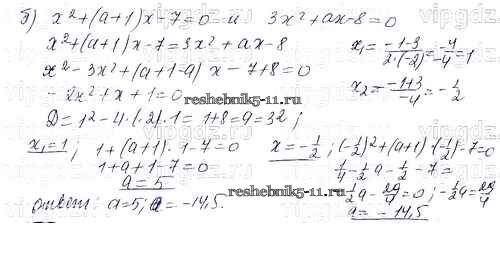 б) x² + (a+1)x - 7 = 0 и 3x² + ax - 8 = 0
x² + (a+1)x - 7 = 3x² + ax - 8
x² - 3x² + (a+1-a)x - 7 + 8 = 0
- 2x² + x + 1 = 0
D = 1² - 4·(-2)·1 = 1+8 = 9 = 3²;
x₁ = (-1-3)/(2·(-2)) = -4/-4 = 1
x₂ = (-1+3)/-4 = -1/2
reshebnik5-11.ru
x₁ = 1; 1 + (a+1)·1 - 7 = 0
1 + a + 1 - 7 = 0
a = 5
x = -1/2; (-1/2)² + (a+1)·(-1/2) - 7 = 0
1/4 - 1/2 a - 1/2 - 7 =
-1/2 a - 29/4 = 0; -1/2 a = 29/4
a = - 14,5
ответ: a = 5; a = -14,5.
reshebnik5-11.ru
vipgdz